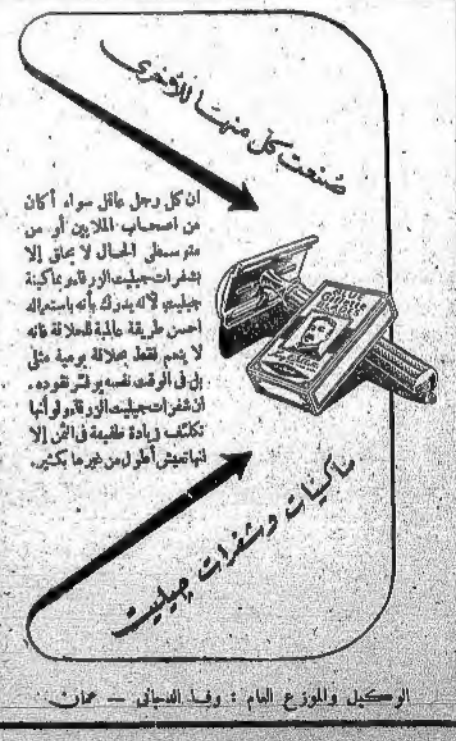 صنعت كل منها للأخرى
ان كل رجل عاقل سواء أكان
من اصحاب الملايين أو من
متوسطي الحال لا يحلق إلا
بشفرات جيليت الزرقاء وبماكينة
جيليت لأنه يدرك بأنه باستعماله
احسن طريقة عالمية للحلاقة فانه
لا ينعم فقط بحلاقة يومية مثلى
بل في الوقت نفسه يوفر نقوده.
ان شفرات جيليت الزرقاء ولو أنها
تكلف زيادة طفيفة في الثمن إلا
انها تعيش أطول من غيرها بكثير.
BLUE
Gillette
BLADES
ماكينات وشفرات جيليت
الوكيل والموزع العام : وفا الدجاني — عمان